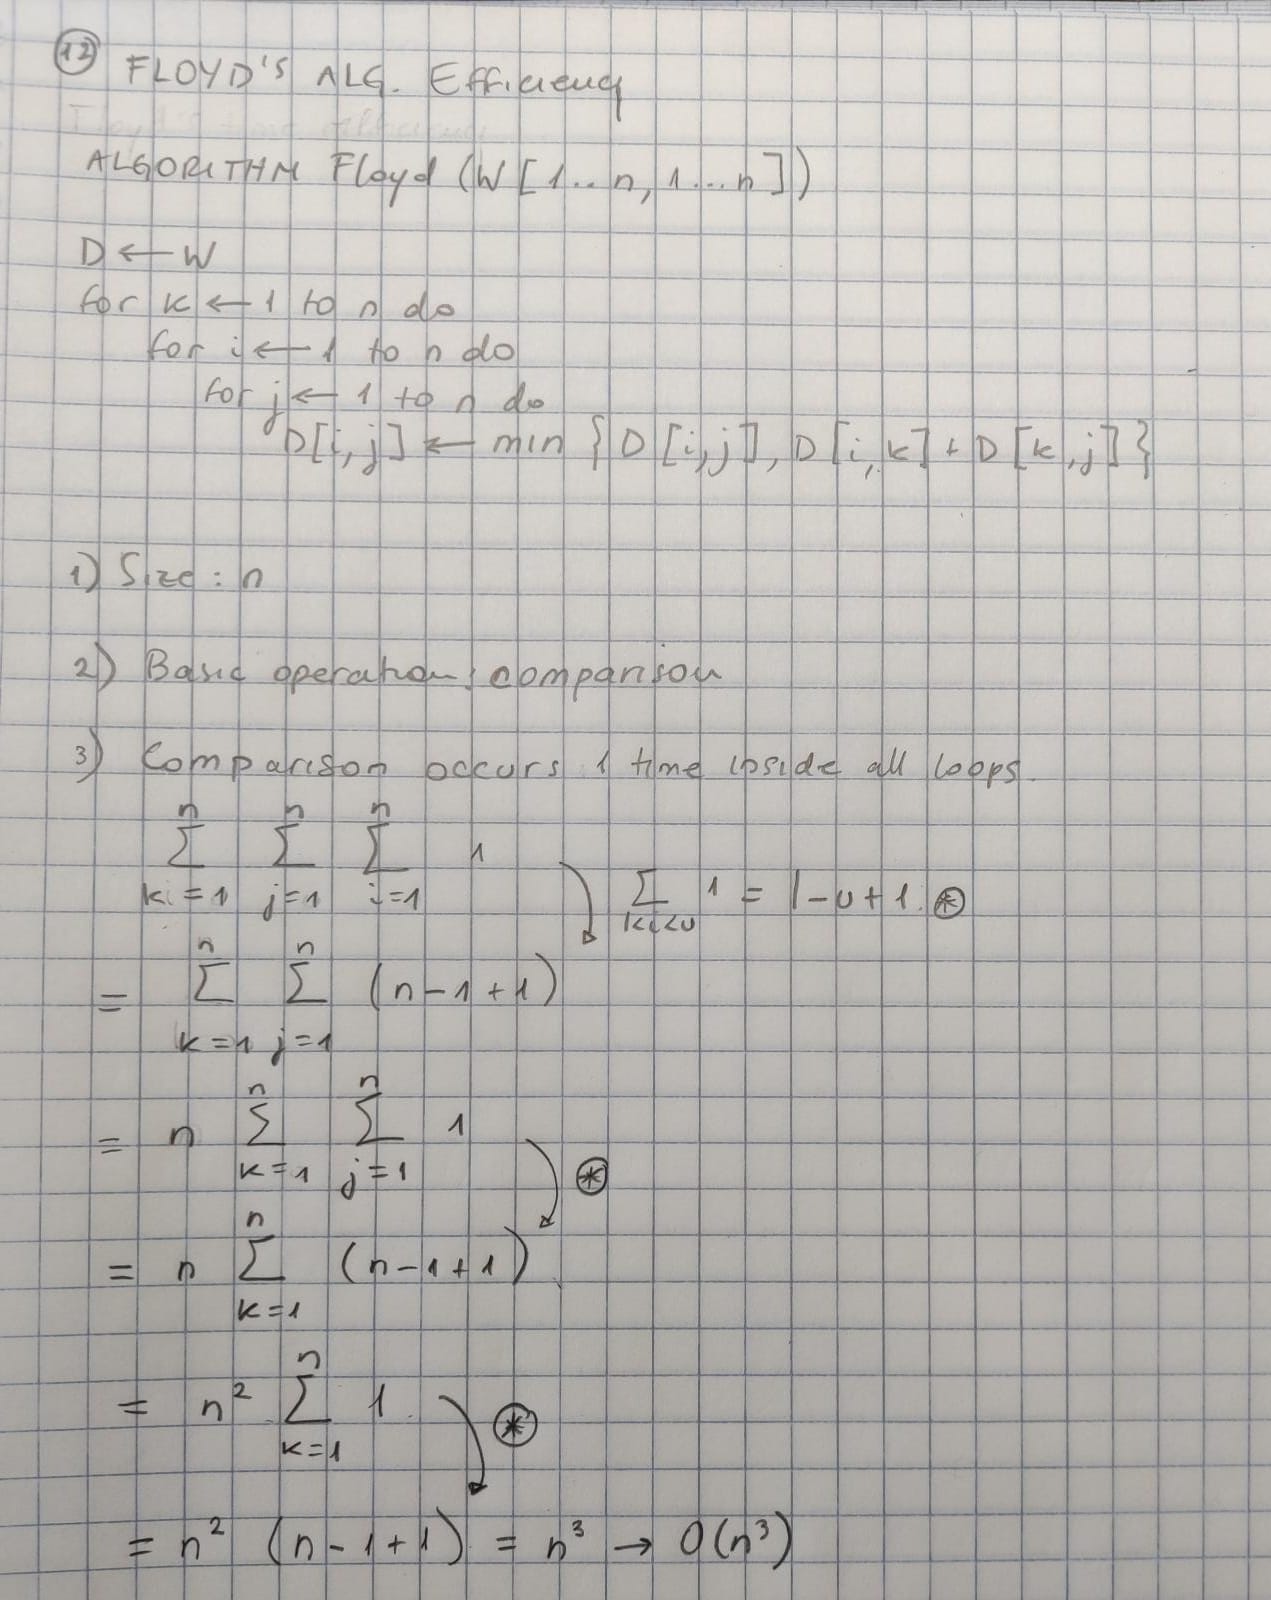 12 FLOYD'S ALG. Efficiency
ALGORITHM Floyd (W[1..n, 1...n])
D ← W
for k ← 1 to n do
for i ← 1 to n do
for j ← 1 to n do
D[i,j] ← min {D[i,j], D[i,k] + D[k,j]}
1) Size : n
2) Basic operation: comparison
3) Comparison occurs 1 time inside all loops.
n n n
Σ Σ Σ 1
k=1 j=1 i=1
Σ 1 = l-u+1 ⊛
n n
= Σ Σ (n-1+1)
k=1 j=1
n n
= n Σ Σ 1
k=1 j=1 ⊛
n
= n Σ (n-1+1)
k=1
n
= n² Σ 1 ⊛
k=1
= n² (n-1+1) = n³ → O(n³)